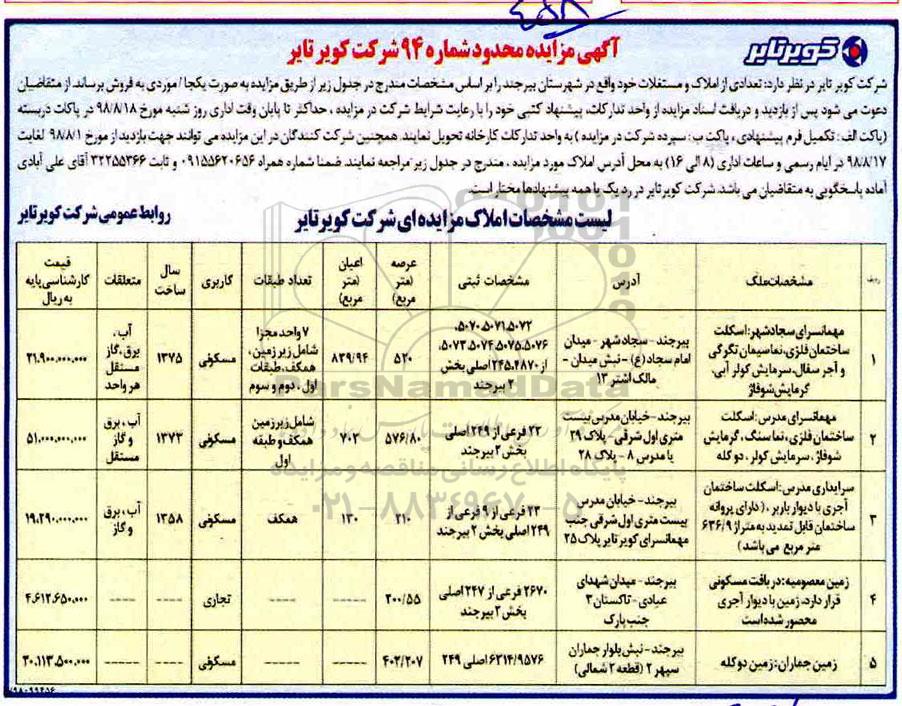 کویرتایر
آگهی مزایده محدود شماره ۹۴ شرکت کویر تایر
شرکت کویر تایر در نظر دارد: تعدادی از املاک و مستغلات خود واقع در شهرستان بیرجند را بر اساس مشخصات مندرج در جدول زیر از طریق مزایده به صورت یکجا / موردی به فروش برساند. از متقاضیان
دعوت می شود پس از بازدید و دریافت اسناد مزایده از واحد تدارکات، پیشنهاد کتبی خود را با رعایت شرایط شرکت در مزایده ، حداکثر تا پایان وقت اداری روز شنبه مورخ ۹۸/۸/۱۸ در پاکات دربسته
(پاکت الف : تکمیل فرم پیشنهادی ، پاکت ب : سپرده شرکت در مزایده ) به واحد تدارکات کارخانه تحویل نمایند. همچنین شرکت کنندگان در این مزایده می توانند جهت بازدید از مورخ ۹۸/۸/۱ لغایت
۹۸/۸/۱۷ در ایام رسمی و ساعات اداری (۸ الی ۱۶) به محل آدرس املاک مورد مزایده ، مندرج در جدول زیر مراجعه نمایند. ضمنا شماره همراه ۰۹۱۵۵۶۲۰۶۵۶ و ثابت ۳۲۲۵۵۳۶۶ آقای علی آبادی
آماده پاسخگویی به متقاضیان می باشد. شرکت کویر تایر در رد یک یا همه پیشنهادها مختار است.
روابط عمومی شرکت کویر تایر
لیست مشخصات املاک مزایده ای شرکت کویر تایر
ردیف | مشخصات ملک | آدرس | مشخصات ثبتی | عرصه (متر مربع) | اعیان (متر مربع) | تعداد طبقات | کاربری | سال ساخت | متعلقات | قیمت کارشناسی پایه به ریال
۱ | مهمانسرای سجادشهر: اسکلت ساختمان فلزی، نما سیمان تگرگی و آجر سفال، سرمایش کولر آبی، گرمایش شوفاژ | بیرجند - سجادشهر - میدان امام سجاد (ع) - نبش میدان - مالک اشتر ۱۳ | ۵۰۷۰،۵۰۷۱،۵۰۷۲ ،۵۰۷۳،۵۰۷۴،۵۰۷۵،۵۰۷۶ از ۲۴۵،۴۸۷۰ اصلی بخش ۲ بیرجند | ۵۲۰ | ۸۳۹/۹۴ | ۷ واحد مجزا شامل زیرزمین، همکف، طبقات اول ، دوم و سوم | مسکونی | ۱۳۷۵ | آب ، برق، گاز مستقل هر واحد | ۳۱.۹۰۰.۰۰۰.۰۰۰
۲ | مهمانسرای مدرس: اسکلت ساختمان فلزی، نما سنگ ، گرمایش شوفاژ ، سرمایش کولر ، دو کله | بیرجند - خیابان مدرس بیست متری اول شرقی - پلاک ۲۹ یا مدرس ۸ - پلاک ۲۸ | ۲۲ فرعی از ۲۴۹ اصلی بخش ۲ بیرجند | ۵۷۶/۸۰ | ۷۰۲ | شامل زیرزمین همکف و طبقه اول | مسکونی | ۱۳۷۳ | آب ، برق و گاز مستقل | ۵۱.۰۰۰.۰۰۰.۰۰۰
۳ | سرایداری مدرس: اسکلت ساختمان آجری با دیوار باربر ، ( دارای پروانه ساختمان قابل تمدید به متراژ ۶۳۶/۹ متر مربع می باشد ) | بیرجند - خیابان مدرس بیست متری اول شرقی جنب مهمانسرای کویر تایر پلاک ۲۵ | ۲۳ فرعی از ۹ فرعی از ۲۴۹ اصلی بخش ۲ بیرجند | ۲۱۰ | ۱۳۰ | همکف | مسکونی | ۱۳۵۸ | آب ، برق و گاز | ۱۹.۲۹۰.۰۰۰.۰۰۰
۴ | زمین معصومیه: در بافت مسکونی قرار دارد، زمین با دیوار آجری محصور شده است | بیرجند - میدان شهدای عبادی - تاکستان ۳ جنب پارک | ۲۶۷۰ فرعی از ۲۴۷ اصلی بخش ۲ بیرجند | ۲۰۰/۵۵ | ----- | ----- | تجاری | ---- | ---- | ۴.۶۱۲.۶۵۰.۰۰۰
۵ | زمین جماران: زمین دو کله | بیرجند - نبش بلوار جماران سپهر ۲ (قطعه ۲ شمالی) | ۶۳۱۴/۹۵۷۶ اصلی ۲۴۹ | ۴۰۲/۲۰۷ | ----- | ----- | مسکونی | ---- | ---- | ۲۰.۱۱۳.۵۰۰.۰۰۰
ParsNamadData
پایگاه اطلاع رسانی مناقصه و مزایده
۰۲۱-۸۸۳۴۹۶۷۰-۵